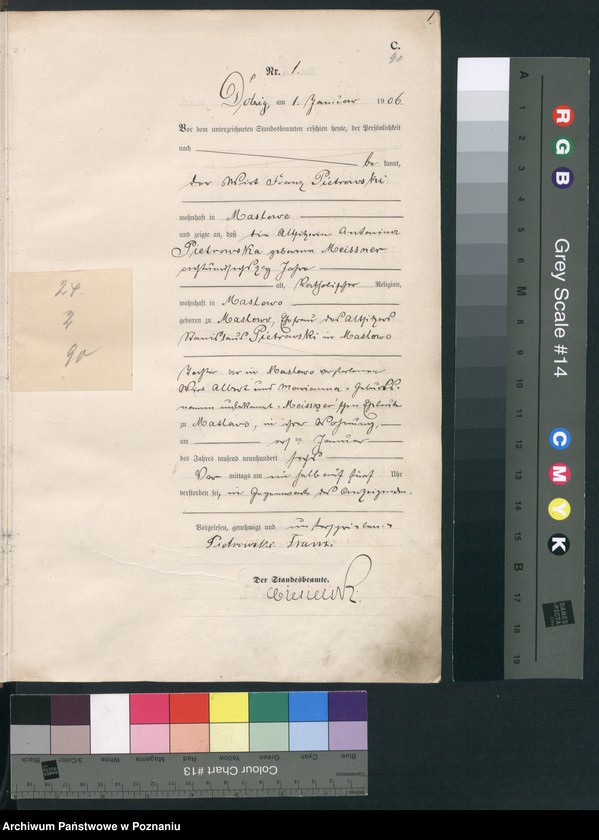 1.
C.
90
Nr. 1.
Dolzig, am 1. Januar 1906.
Vor dem unterzeichneten Standesbeamten erschien heute, der Persönlichkeit
nach be kannt,
der Wirt Franz Pietrowski
wohnhaft in Maslowo
und zeigte an, daß die Altsitzerin Antonina
Pietrowska geborene Meissner
Jahre
alt, katholischer Religion,
wohnhaft in Maslowo
geboren zu Maslowo, Ehefrau des Altsitzers
Stanislaus Pietrowski in Maslowo
Tochter der in Maslowo verstorbenen
Wirt Albert und Marianna - Geburts-
namen unbekannt - Meissner'schen Eheleute
zu Maslowo, in ihrer Wohnung,
am ersten Januar
des Jahres tausend neunhundert sechs
Vor mittags um ein halb auf fünf Uhr
verstorben sei, in Gegenwart des Anzeigenden.
Vorgelesen, genehmigt und unterschrieben
Pietrowski Franz.
Der Standesbeamte.
24.
2
90
A 1 2 3 4 5 6 M 8 9 10 11 12 13 14 15 B 17 18 19
R G B
Grey Scale #14
C M Y K
DANES PICTA .COM
Blue Cyan Green Yellow Red Magenta White 3/Color Black
Colour Chart #13
Archiwum Państwowe w Poznaniu